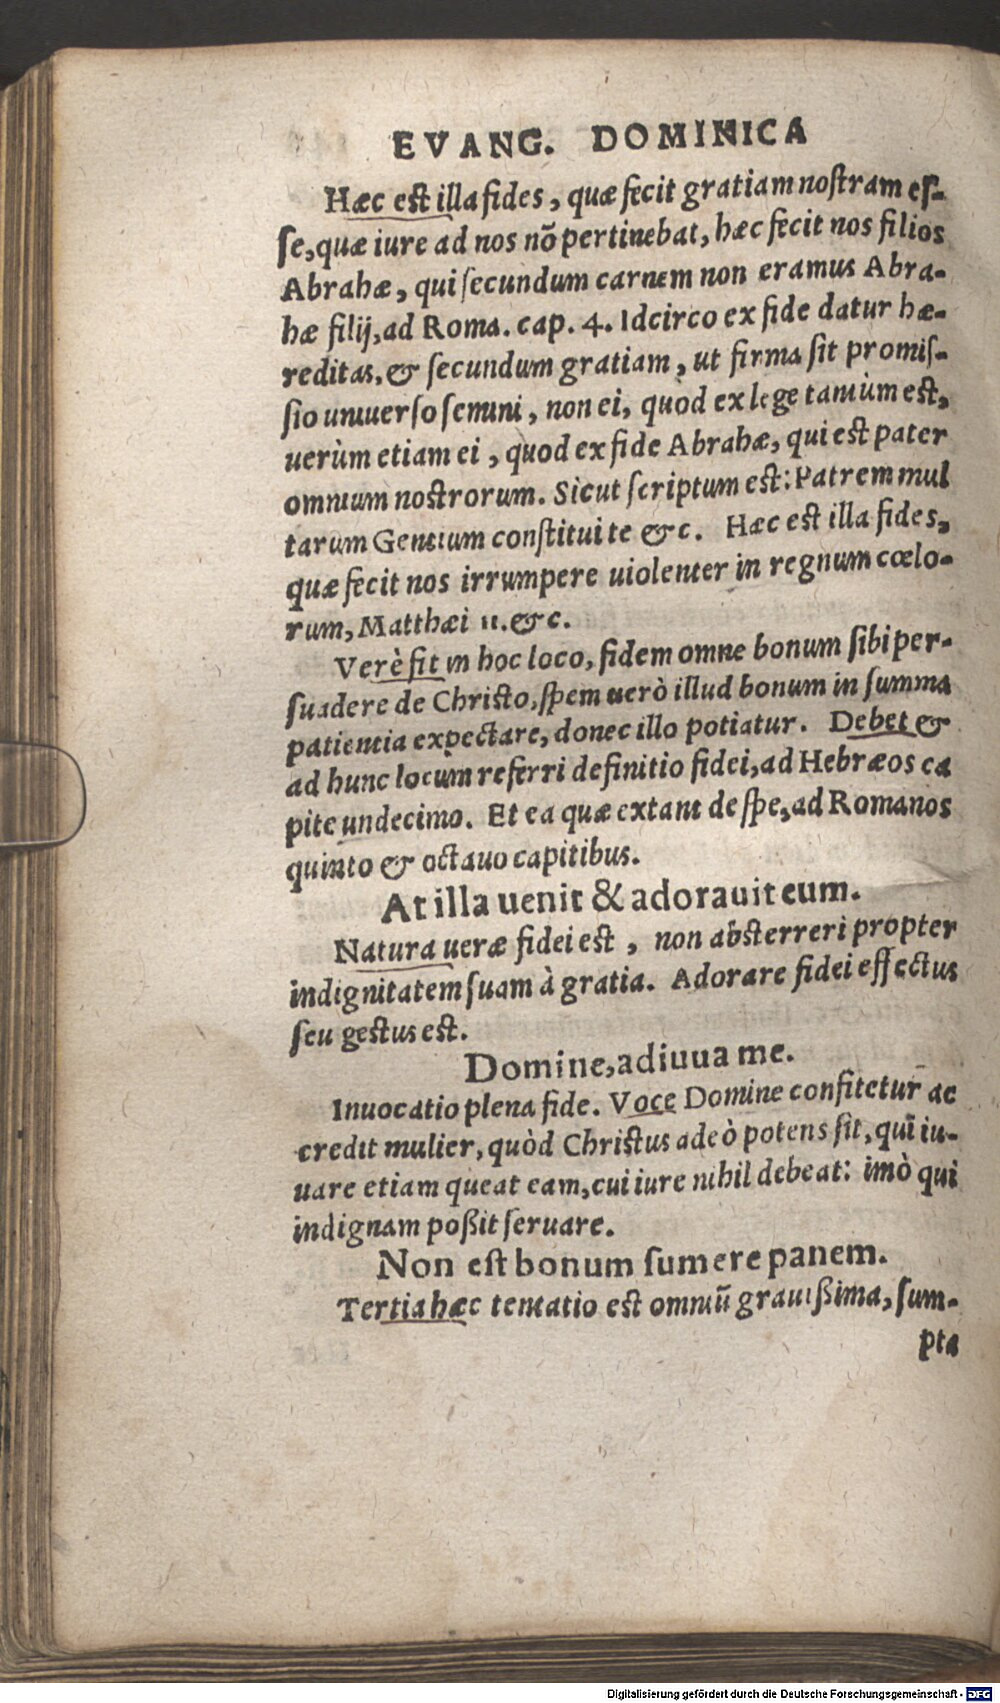 EVANG. DOMINICA
Hæc est illa fides, quæ fecit gratiam nostram es-
se, quæ iure ad nos nõ pertinebat, hæc fecit nos filios
Abrahæ, qui secundum carnem non eramus Abra-
hæ filij, ad Roma. cap. 4. Idcirco ex fide datur hæ-
reditas, & secundum gratiam, ut firma sit promis-
sio uniuerso semini, non ei, quod ex lege tantùm est,
uerùm etiam ei, quod ex fide Abrahæ, qui est pater
omnium nostrorum. Sicut scriptum est: Patrem mul
tarum Gentium constitui te &c. Hæc est illa fides,
quæ fecit nos irrumpere uiolenter in regnum cœlo-
rum, Matthæi 11. &c.
Verè fit in hoc loco, fidem omne bonum sibi per-
suadere de Christo, spem uerò illud bonum in summa
patientia expectare, donec illo potiatur. Debet &
ad hunc locum referri definitio fidei, ad Hebræos ca
pite undecimo. Et ea quæ extant de spe, ad Romanos
quinto & octauo capitibus.
At illa uenit & adorauit eum.
Natura ueræ fidei est, non absterreri propter
indignitatem suam à gratia. Adorare fidei effectus
seu gestus est.
Domine, adiuua me.
Inuocatio plena fide. Voce Domine confitetur ac
credit mulier, quòd Christus adeò potens sit, quĩ iu-
uare etiam queat eam, cui iure nihil debeat: imò qui
indignam poßit seruare.
Non est bonum sumere panem.
Tertia hæc tentatio est omniũ grauißima, sum-
pta
Digitalisierung gefördert durch die Deutsche Forschungsgemeinschaft - DFG